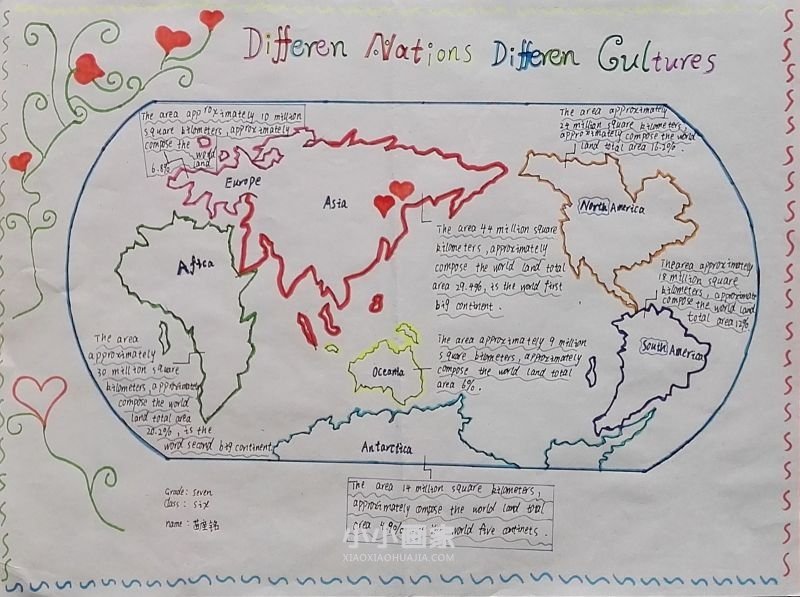 Differen Nations Differen Cultures
The area approximately 10 million
square kilometers, approximately
compose the world
land
6.8%
Europe
Asia
The area approximately
24 million square kilometers,
approximately compose the world
land total area 16.2%.
North America
Africa
The area 44 million square
kilometers, approximately
compose the world land total
area 29.4%, is the world first
big continent.
The area approximately
18 million square
kilometers, approximate
compose the world land
total area 12%
South America
The area
approximately
30 million square
kilometers, approximately
compose the world
land total area
20.2%, is the
word second big continent
The area approximately 9 million
square kilometers, approximately
compose the world land total
area 6%.
Oceania
Antarctica
The area 14 million square kilometers,
approximately compose the world land total
area 4.9% world five continets.
Grade: seven
Class: six
name:
小小画家
XIAOXIAOHUAJIA.COM